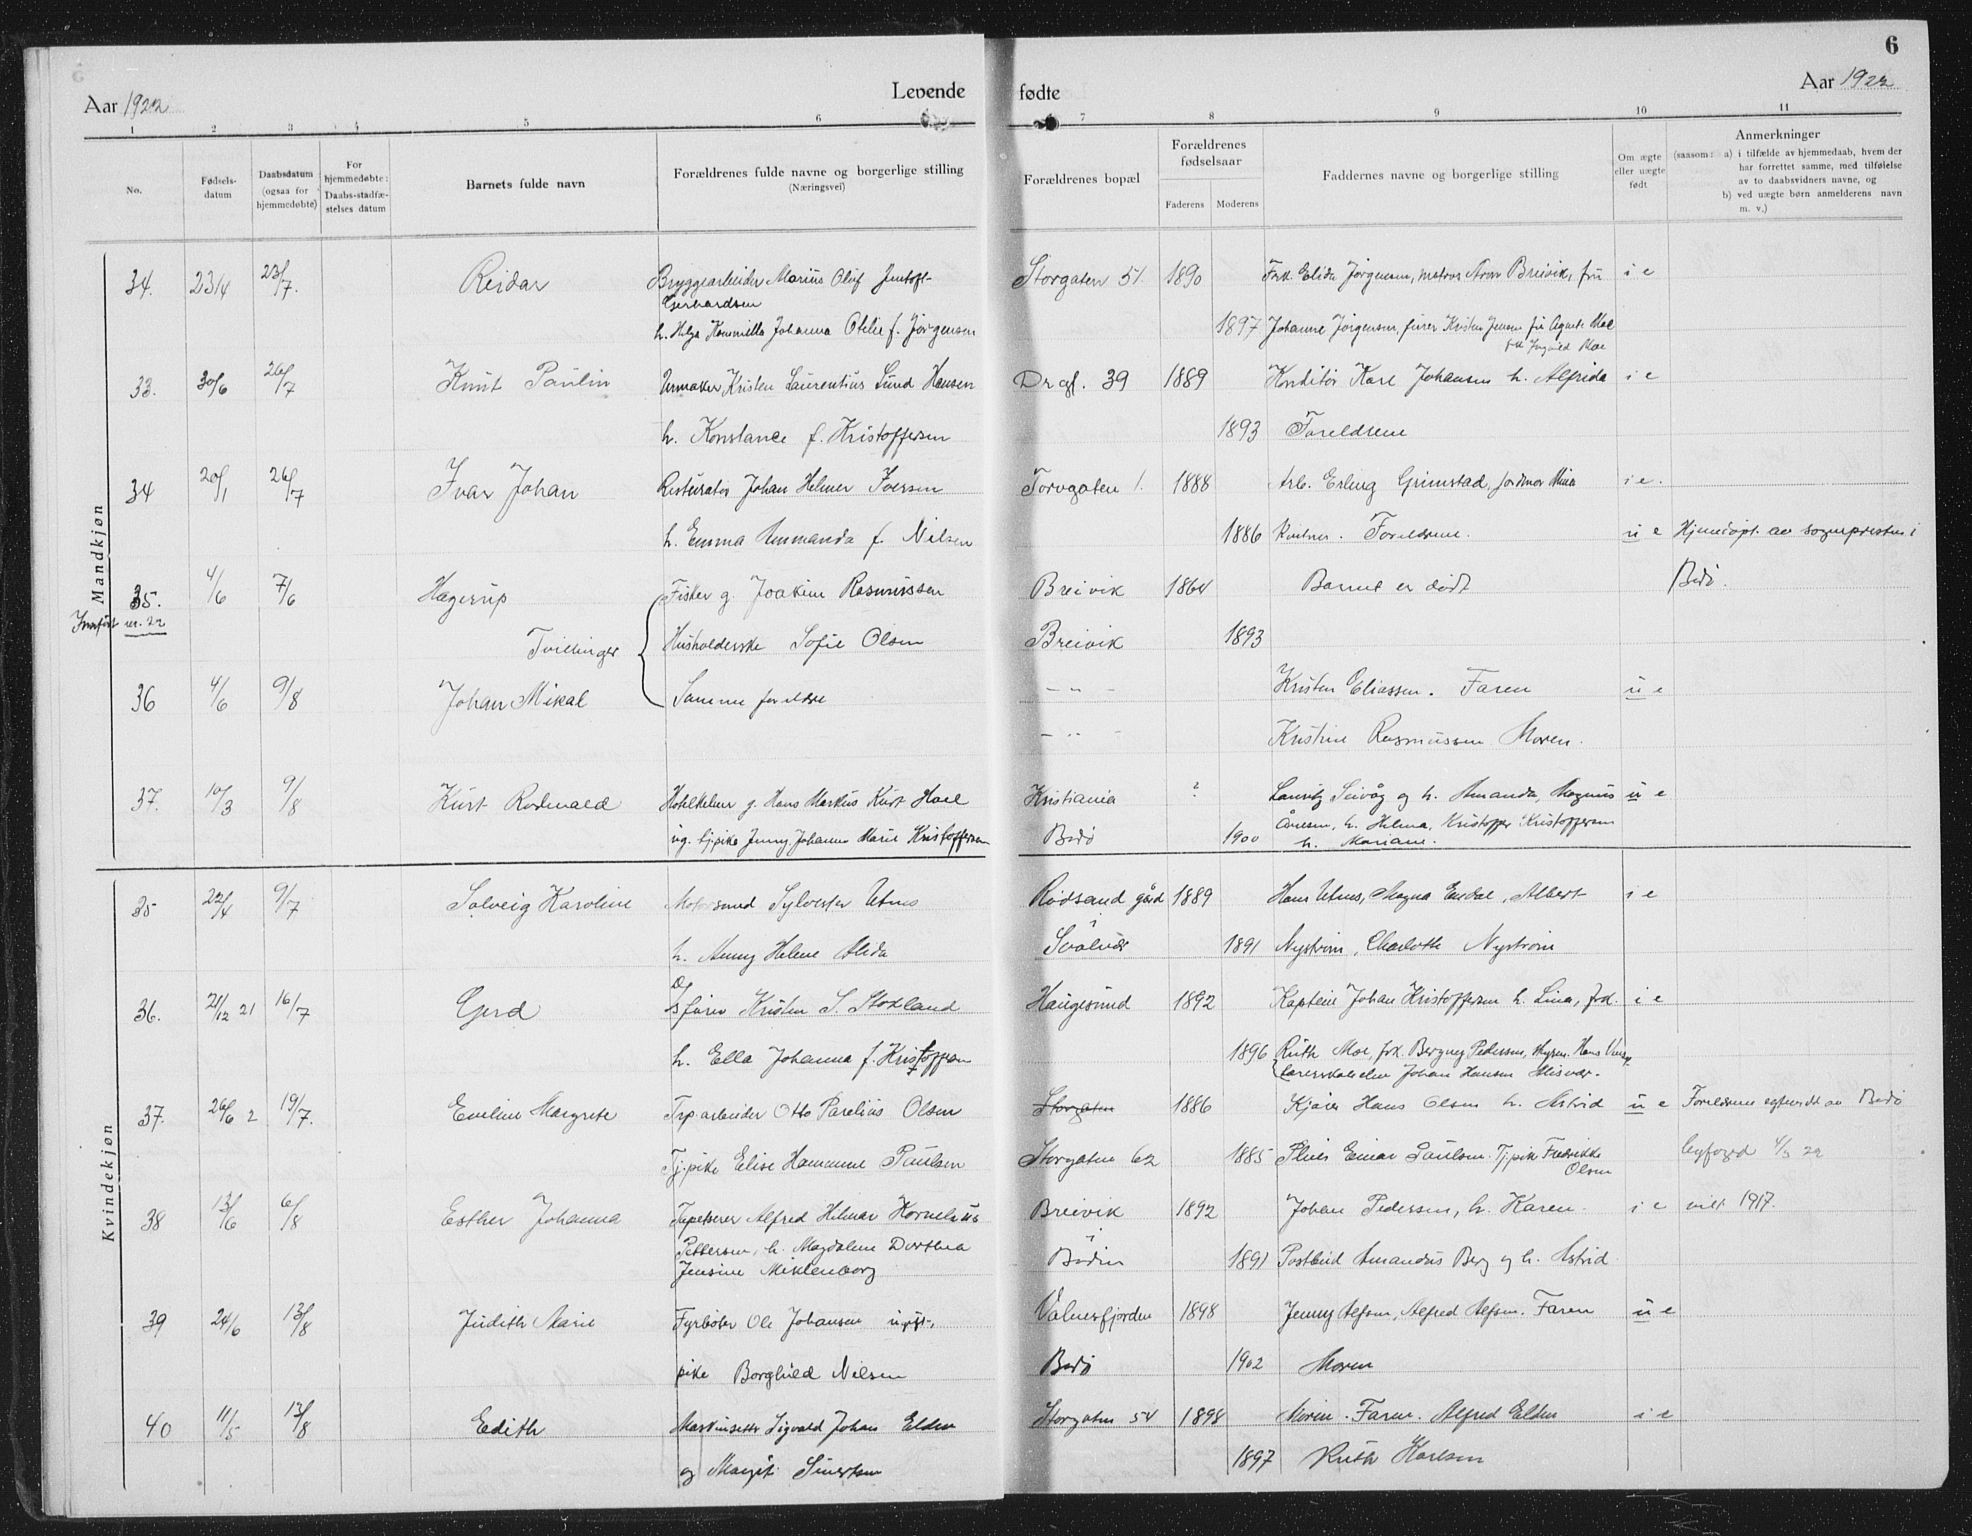 6
Aar 1922 Levende fødte Aar 1922
1 2 3 4 5 6 7 8 9 10 11
No.
Fødsels-
datum
Daabsdatum
(ogsaa for
hjemmedøbte)
For
hjemmedøbte:
Daabs-stadfæ-
stelses datum
Barnets fulde navn
Forældrenes fulde navne og borgerlige stilling
(Næringsvei)
Forældrenes bopæl
Forældrenes
fødselsaar
Faderens Moderens
Faddernes navne og borgerlige stilling
Om ægte
eller uægte
født
Anmerkninger
(saasom: a) i tilfælde av hjemmedaab, hvem der
har forrettet samme, med tilføielse
av to daabsvidners navne, og
b) ved uægte børn anmelderens navn
m. v.)
Mandkjøn
34. 23/4 23/7. Reidar Bryggearbeider Marius Oluf Jentoft Storgaten 51. 1890 Frk. Elida Jørgensen, matros Arne Breivik, fru i e
Gerhardsen
h. Helga Kammilla Johanna Otelie f. Jørgensen 1897 Johanne Jørgensen, fører Kristen Jensen fru Agnete Moe
frk Ingvild Moe
33. 30/6 26/7 Knut Paulin Urmaker Kristen Laurentius Lund Hansen Dr gt. 39 1889 Konditor Karl Johansen h. Alfrida i e
h. Konstance f. Kristoffersen 1893 Foreldrene
34 20/1 26/7 Ivar Johan Resturatør Johan Helmer Iversen Torvgaten 1. 1888 Arb. Erling Grimstad, jordmor Mina i e.
h. Emma Ammanda f. Nilsen 1886 Foreldrene. u e Hjemedøpt av sognepresten i
35. 4/6 7/6 Hagerup Fisker g. Joakim Rasmussen Breivik 1864 Barnet er dødt Bodø.
Innført nr. 22
Tvillinger Husholderske Sofie Olsen Breivik 1893
36 4/6 9/8 Johan Mikal Samme foreldre - " - Kristen Eliassen. Faren u e
- " - Kristine Rasmussen Moren.
37. 10/3 9/8 Kurt Rodwald Hotelkelner g. Hans Markus Kurt Hoel Kristiania ? Lauritz Seivåg og h. Amanda, Magnus u e
ug. tj.pike Jenny Johanne Marie Kristoffersen Bodø 1900 h. Helma, Kristoffer Kristoffersen
h. Mariane.
Kvindekjøn
35 22/4 9/7 Solveig Karoline Sylvester Utnes Rødsand gård 1889 Hans Utnes, Magna Endal, Albert i e
i
h. Anny Helene Alida Svolvær 1891 Nystrøm, Charlotte Nystrøm
36. 21/12 21 16/7 Gerd D/s fører Kristen S. Stokland Haugesund 1892 Kaptein Johan Kristoffersen h. Lina, frk. i e
h. Ella Johanna f. Kristoffersen 1896 Ruth Moe, frk. Bergny Pedersen, Hans
Johan Hansen Misvær.
37. 26/6 2 19/7. Eveline Margrete Trp arbeider Otto Parelius Olsen Storgaten 1886 Hans Olsen h. Astrid u e Foreldrene egteviet av Bodø
Tj.pike Elise Hamanne Paulsen Storgaten 62 1885 Einar Paulsen. Tj.pike Fredrikke byfoged 4/3 22
Olsen
38 13/6 6/8 Esther Johanna Tapetserer Alfred Hilmar Kornelius Breivik 1892 Johan Pedersen, h. Karen. i e viet 1917.
Pettersen, h. Magdalene Dorthea i
Jensine Meklenborg Bodin 1891 Postbud Amandus Berg og h. Astrid
39 24/6 13/8 Judith Marie Fyrbøter Ole Johansen ugift, Valnesfjorden 1898 Jenny Alfsen, Alfred Alfsen. Faren u e
pike Borghild Nilsen Bodø 1902 Moren
40 11/5 13/8 Edith Maskinsetter Sigvald Johan Elden Storgaten 54 1898 Moren. Faren. Alfred Elden i e
og Margit Sivertsen 1897 Ruth Karlsen